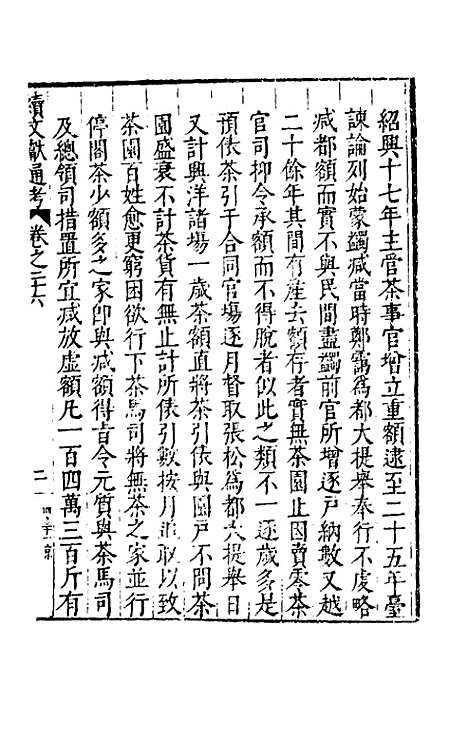 紹興十七年主管茶事官增立重額逮至二十五年臺
諫論列始蒙蠲減當時鄭靄爲都大提舉奉行不虔略
减都額而實不與民間盡蠲前官所增逐戸納數又越
二十餘年其間有產去額存者實無茶園止因賣零茶
官司抑令承額而不得脫者似此之類不一逐歲多是
預俵茶引于合同官場逐月督取張松爲都大提舉日
又計興洋諸場一歲茶額直將茶引俵與園戸不問茶
園盛衰不計茶貨有無止計所俵引數按月追取以致
茶園百姓愈更窮困欲行下茶馬司將無茶之家並行
停閣茶少額多之家卽與减額得旨令元質與茶馬司
及總領司措置所宜减放虛額凡一百四萬三百斤有
續文獻通考 卷之二十六